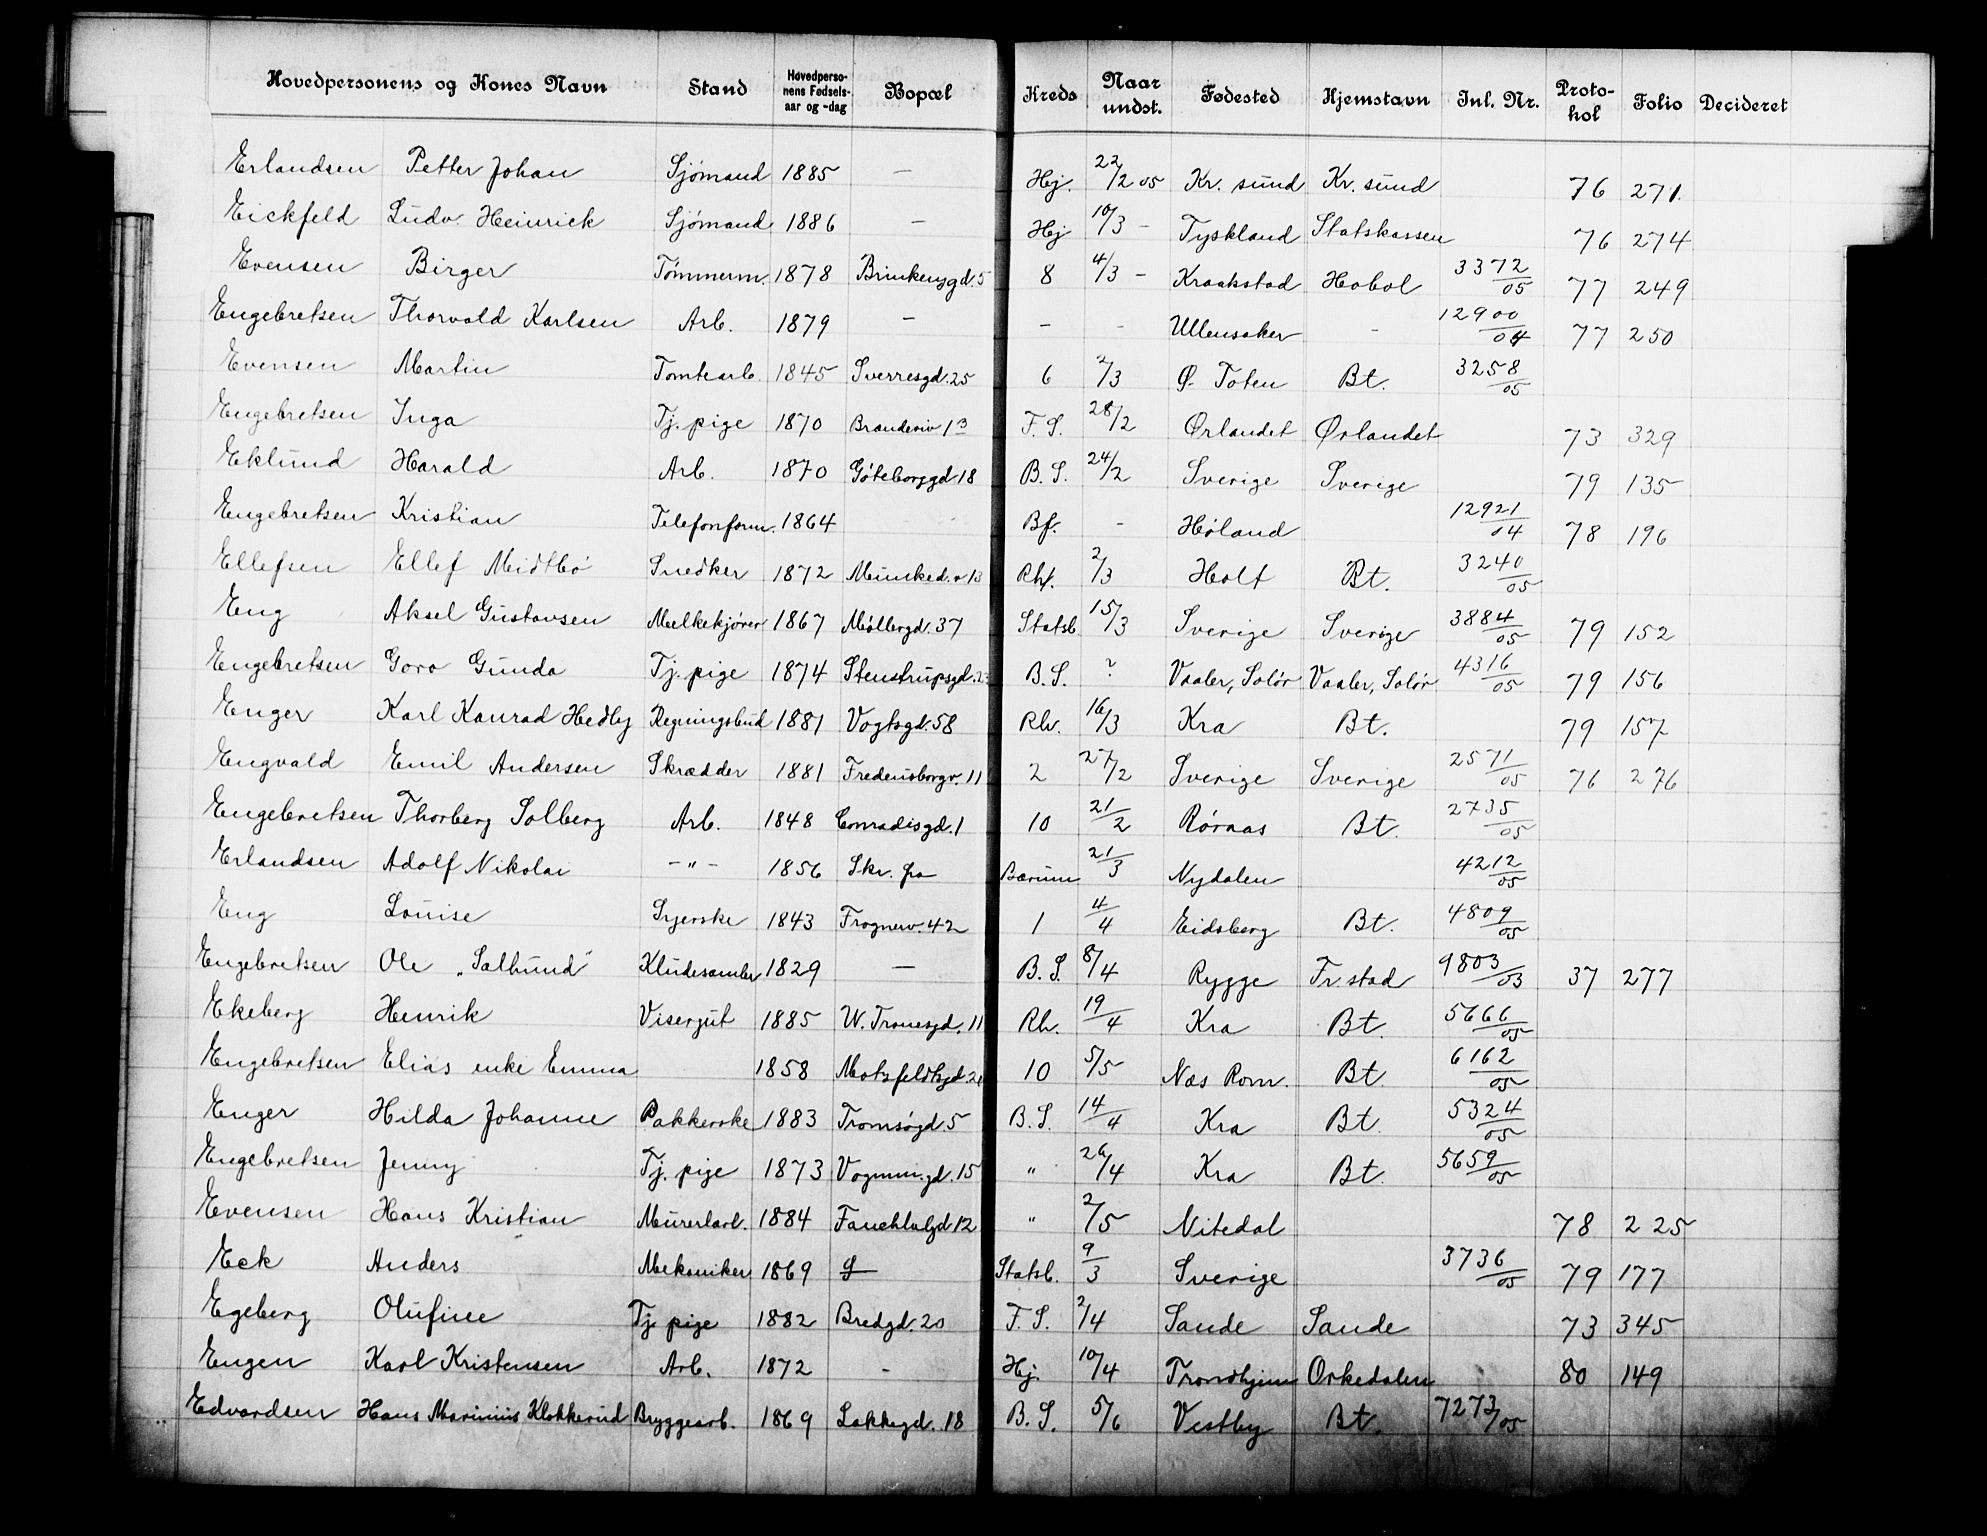 Hovedpersonens og Kones Navn Stand Hovedpersonens Fødselsaar og -dag Bopæl Kreds Naar undst. Fødested Hjemstavn Inl. Nr. Protokol Folio Decideret
Erlandsen Petter Johan Sjømand 1885 — Hj. 22/2 05 Kr. sund Kr. sund 76 271.
Eickfeld Ludv. Heinrick Sjømand 1886 — Hj 10/3 - Tyskland Statskassen 76 274
Evensen Birger Tømmerm. 1878 Brinkensgd. 5 8 4/3 - Kraakstad Hobøl 3372/05 77 249
Engebretsen Thorvald Karlsen Arb. 1879 - - - Ullensaker - 12900/04 77 250
Evensen Martin Tomtearb. 1845 Sverresgd. 25 6 2/3 Ø. Toten Bt. 3258/05
Engebretsen Inga Tj. pige 1870 13 F. S. 28/2 Ørlandet Ørlandet 73 329
Eklund Harald Arb. 1870 Göteborggd 18 B. S. 24/2 Sverige Sverige 79 135
Engebretsen Kristian Telefonform. 1864 Bf. - Høland 12921/04 78 196
Ellefsen Ellef Midtbø Snedker 1872 Munked.v 13 2/3 Holt Bt. 3240/05
Eng Aksel Gustavsen Melkekjører 1867 Møllergd. 37 Statsb. 15/3 Sverige Sverige 3884/05 79 152
Engebretsen Goro Gunda Tj. pige 1874 Stenstrupsgd. B. S. ? Vaaler, Solør Vaaler, Solør 4316/05 79 156
Enger Karl Konrad Hedley Regningsbud 1881 Vogtsgd. 58 Rh. 16/3 Kra Bt. 79 157
Engvald Emil Andersen Skrædder 1881 Fredensborgv. 11 2 27/2 Sverige Sverige 2571/05 76 276
Engebretsen Thorberg Solberg Arb. 1848 Conradisgd. 1 10 21/2 Røraas Bt. 2735/05
Erlandsen Adolf Nikolai - " - 1856 Skr. fra Bærum 21/3 Nydalen 4212/05
Eng Louise Syerske 1843 Frognerv. 42 1 4/4 Eidsberg Bt. 4809/05
Engebretsen Ole „Salhund" Kludesamler 1829 — B. S. 8/4 Rygge Fr. stad 9803/03 37 277
Ekeberg Henrik Visergut 1885 W. Tranesgd. 11 Rh. 19/4 Kra Bt. 5666/05
Engebretsen Elias enke Emma 1858 Motzfeldtsgd. 10 5/5 Næs Rom. Bt 6162/05
Enger Hilda Johanne Pakkerske 1883 Tromsøgd. 5 B. S. 14/4 Kra Bt. 5324/05
Engebretsen Jenny Tj. pige 1873 Vognm.gd. 15 " 26/4 Kra Bt. 5659/05
Evensen Hans Kristian Murerarb. 1884 Fauchaldgd 12 " 2/5 Nitedal 78 225
Eek Anders Mekaniker 1869 Statsb. 9/3 Sverige 3736/05 79 177
Egeberg Olufine Tj. pige 1882 Bredgd. 20 F. S. 2/4 Sande Sande 73 345
Engen Karl Kristensen Arb. 1872 - Hj. 10/4 Trondhjem Orkedalen 80 149
Edvardsen Hans Marinius Klokkerud Bryggearb. 1869 Lakkegd. 18 B. S. 5/6 Vestby Bt. 7273/05